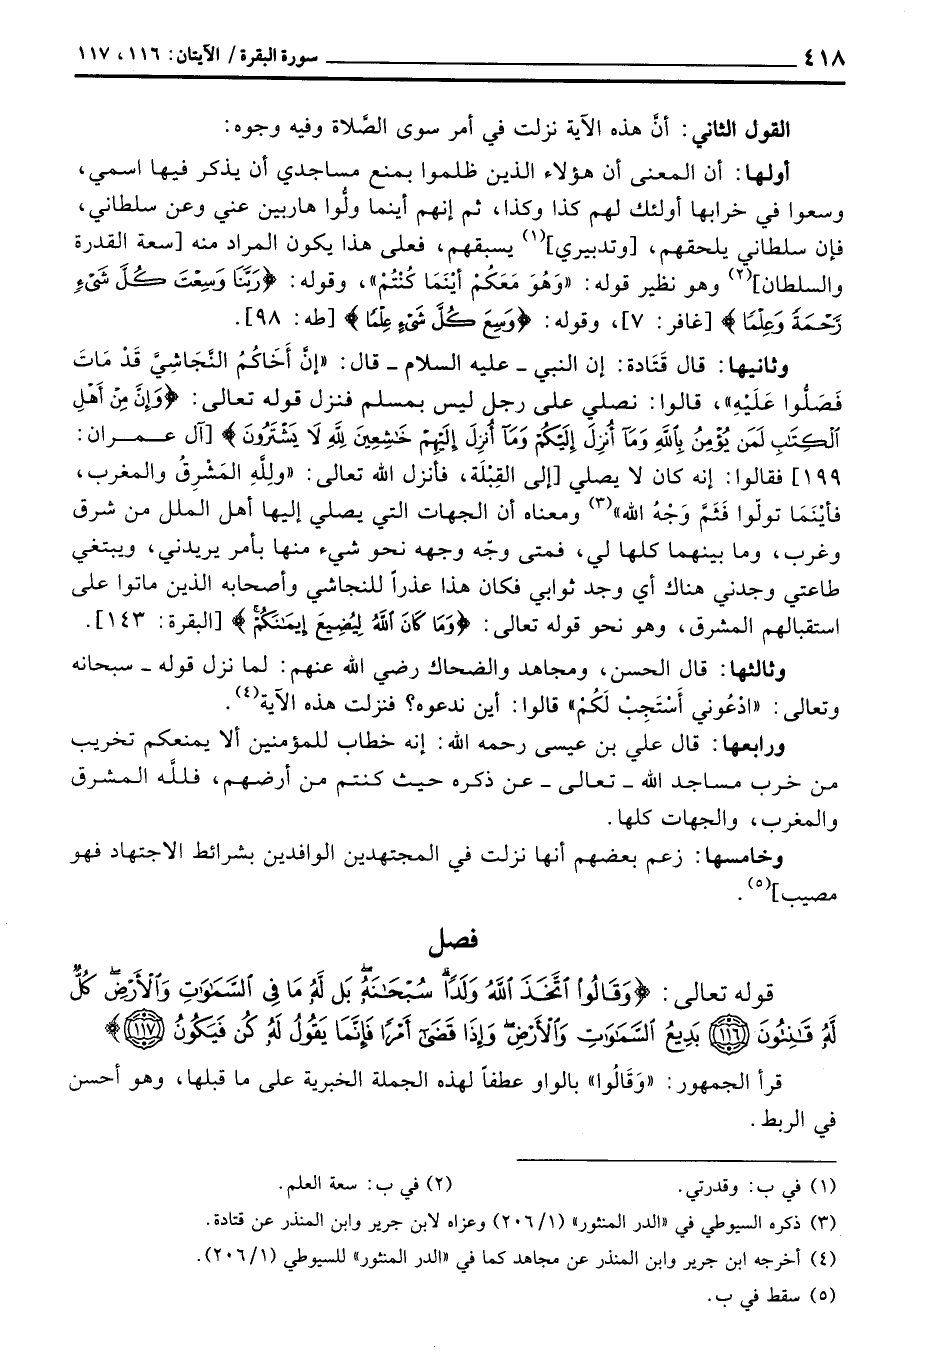 ٤١٨ ـــــــــ سورة البقرة / الآيتان: ١١٦، ١١٧
القول الثاني: أنَّ هذه الآية نزلت في أمر سوى الصَّلاة وفيه وجوه:
أولها: أن المعنى أن هؤلاء الذين ظلموا بمنع مساجدي أن يذكر فيها اسمي،
وسعوا في خرابها أولئك لهم كذا وكذا، ثم إنهم أينما ولُّوا هاربين عني وعن سلطاني،
فإن سلطاني يلحقهم، [وتدبيري](١) يسبقهم، فعلى هذا يكون المراد منه [سعة القدرة
والسلطان](٢) وهو نظير قوله: «وَهُوَ مَعَكُمْ أَيْنَمَا كُنْتُمْ»، وقوله: ﴿رَبَّنَا وَسِعْتَ كُلَّ شَيْءٍ
رَّحْمَةً وَعِلْمًا﴾ [غافر: ٧]، وقوله: ﴿وَسِعَ كُلَّ شَيْءٍ عِلْمًا﴾ [طه: ٩٨].
وثانيها: قال قَتَادة: إن النبي ـ عليه السلام ـ قال: «إنَّ أَخَاكُمُ النَّجَاشِيَّ قَدْ مَاتَ
فَصَلُّوا عَلَيْهِ»، قالوا: نصلي على رجل ليس بمسلم فنزل قوله تعالى: ﴿وَإِنَّ مِنْ أَهْلِ
ٱلْكِتَٰبِ لَمَن يُؤْمِنُ بِٱللَّهِ وَمَآ أُنزِلَ إِلَيْكُمْ وَمَآ أُنزِلَ إِلَيْهِمْ خَٰشِعِينَ لِلَّهِ لَا يَشْتَرُونَ﴾ [آل عـمـران:
١٩٩] فقالوا: إنه كان لا يصلي [إلى القِبْلَة، فأنزل الله تعالى: «وَلِلَّهِ المَشْرِقُ والمغرب،
فأيْنَمَا تولّوا فَثَمَّ وَجْهُ الله»(٣) ومعناه أن الجهات التي يصلي إليها أهل الملل من شرق
وغرب، وما بينهما كلها لي، فمتى وجّه وجهه نحو شيء منها بأمر يريدني، ويبتغي
طاعتي وجدني هناك أي وجد ثوابي فكان هذا عذراً للنجاشي وأصحابه الذين ماتوا على
استقبالهم المشرق، وهو نحو قوله تعالى: ﴿وَمَا كَانَ ٱللَّهُ لِيُضِيعَ إِيمَٰنَكُمْ﴾ [البقرة: ١٤٣].
وثالثها: قال الحسن، ومجاهد والضحاك رضي الله عنهم: لما نزل قوله ـ سبحانه
وتعالى: «ادْعُوني أَسْتَجِبْ لَكُمْ» قالوا: أين ندعوه؟ فنزلت هذه الآية(٤).
ورابعها: قال علي بن عيسى رحمه الله: إنه خطاب للمؤمنين ألا يمنعكم تخريب
من خرب مساجد الله ـ تعالى ـ عن ذكره حيث كنتم من أرضهم، فللَّه المشرق
والمغرب، والجهات كلها.
وخامسها: زعم بعضهم أنها نزلت في المجتهدين الوافدين بشرائط الاجتهاد فهو
مصيب](٥).
فصل
قوله تعالى: ﴿وَقَالُوا۟ ٱتَّخَذَ ٱللَّهُ وَلَدًا ۗ سُبْحَٰنَهُۥ ۖ بَل لَّهُۥ مَا فِى ٱلسَّمَٰوَٰتِ وَٱلْأَرْضِ ۖ كُلٌّ
لَّهُۥ قَٰنِتُونَ ١١٦ بَدِيعُ ٱلسَّمَٰوَٰتِ وَٱلْأَرْضِ ۖ وَإِذَا قَضَىٰٓ أَمْرًا فَإِنَّمَا يَقُولُ لَهُۥ كُن فَيَكُونُ ١١٧﴾
قرأ الجمهور: «وَقَالُوا» بالواو عطفاً لهذه الجملة الخبرية على ما قبلها، وهو أحسن
في الربط.
(١) في ب: وقدرتي. (٢) في ب: سعة العلم.
(٣) ذكره السيوطي في «الدر المنثور» (١/ ٢٠٦) وعزاه لابن جرير وابن المنذر عن قتادة.
(٤) أخرجه ابن جرير وابن المنذر عن مجاهد كما في «الدر المنثور» للسيوطي (١/ ٢٠٦).
(٥) سقط في ب.